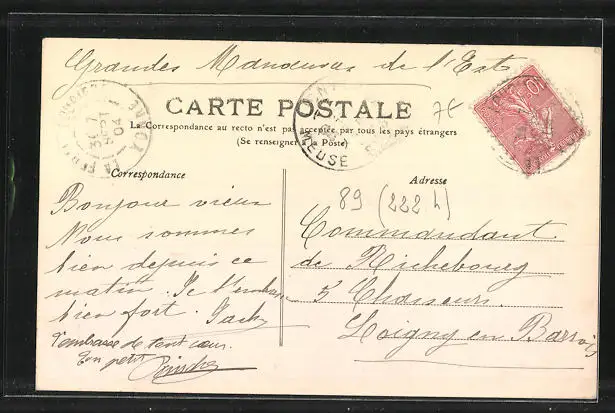 Grandes Manoeuvres de l'Est
CARTE POSTALE
La Correspondance au recto n'est pas acceptée par tous les pays étrangers
(Se renseigner à la Poste)
Correspondance
Adresse
89 (222 h)
Bonjour vieux
Nous sommes
bien depuis ce
matin. Je t'embrasse
bien fort.
t'embrasse de tout coeur
Ton petit
Commandant
de Richebourg
5 Chasseurs.
Loigny en Barrois
LA FERTE
YONNE
3E 7
SEPT
04
MEUSE
10